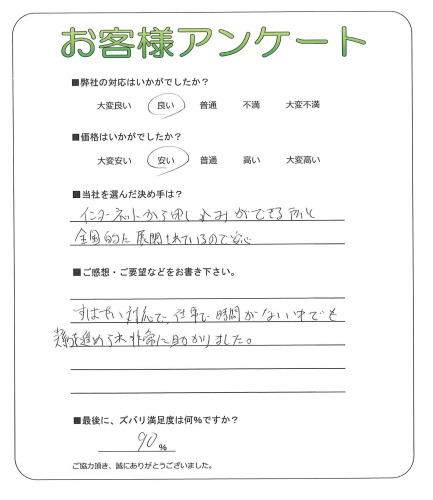 お客様アンケート
■弊社の対応はいかがでしたか？
大変良い 良い 普通 不満 大変不満
■価格はいかがでしたか？
大変安い 安い 普通 高い 大変高い
■当社を選んだ決め手は？
インターネットから申し込みができる所と
全国的に展開されているので安心
■ご感想・ご要望などをお書き下さい。
すばやい対応で、仕事で時間がない中でも
を進められ非常に助かりました。
■最後に、ズバリ満足度は何%ですか？
90 %
ご協力頂き、誠にありがとうございました。